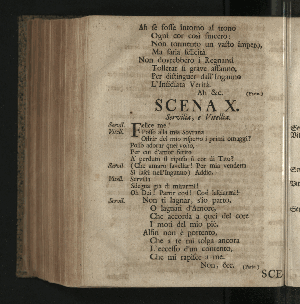 Ah se fosse intorno al trono
Ogni cor così sincero:
Non tormento un vasto Impero,
Ma saria felicità.
Non dovrebbero i Regnanti
Tollerar sì grave affanno,
Per distinguer dall'inganno
L'Insidiata Verità.
Ah &c. (Parte.)
SCENA X.
Servilia, e Vitellia.
Servil. Felice me!
Vitell. Posso alla mia Sovrana
Offrir del mio rispetto i primi omaggj?
Posso adorar quel volto,
Per cui d'amor ferito
A' perduto il riposo il cor di Tito?
Servil. (Che amaro favellar! Per mia vendetta
Si lasci nell'inganno) Addio.
Vitell. Servilia
Sdegna già di mirarmi!
Oh Dei! Partir così! Così lasciarmi!
Servil. Non ti lagnar, s'io parto,
O lagnati d'Amore,
Che accorda a quei del core
I moti del mio piè.
Alfin non è portento,
Che a te mi tolga ancora
L'eccesso d'un contento,
Che mi rapisce a me.
Non, &c. (Parte.)
SCE